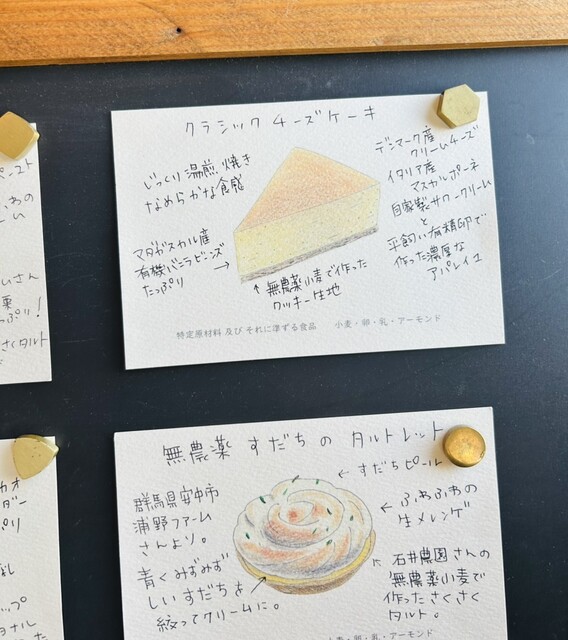 クラシック チーズケーキ
じっくり湯煎焼き
なめらかな食感
デンマーク産
クリームチーズ
イタリア産
マスカルポーネ
自家製サワークリーム
と
平飼い有精卵で
作った濃厚な
アパレイユ
マダガスカル産
有機バニラビーンズ
たっぷり →
↑ 無農薬小麦で作った
クッキー生地
特定原材料 及び それに準ずる食品 小麦・卵・乳・アーモンド
無農薬 すだちの タルトレット
← すだちピール
← ふわふわの
生メレンゲ
群馬県安中市
浦野ファーム
さんより。
青くみずみず
しいすだちを
絞ってクリームに。
石井農園さんの
無農薬小麦で
作ったさくさく
タルト。
小麦・卵・乳・アーモンド
ペースト
わの
さん
っぷり!
さくタルト
カオ
ダー
ップ
ョナル